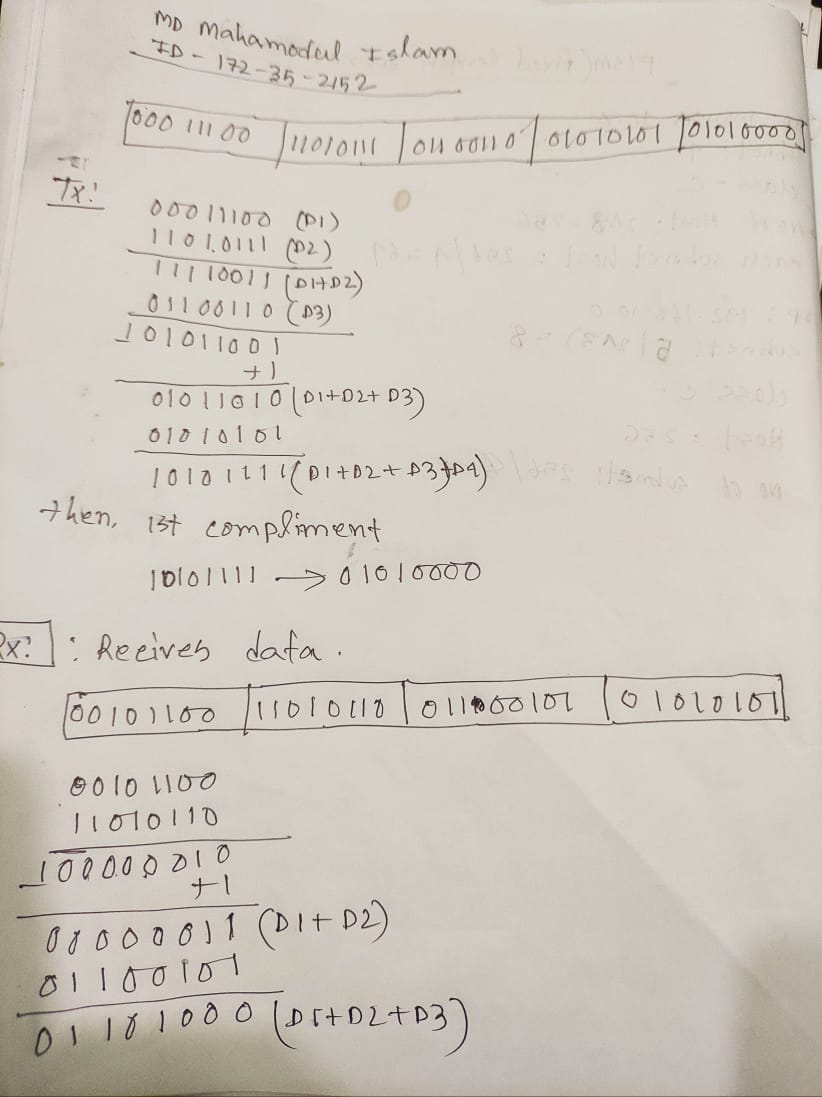 MD Mahamodul Islam
ID - 172-35-2152
00011100 | 11010111 | 01100110 | 01010101 | 01010000
Tx:
00011100 (D1)
11010111 (D2)
11110011 (D1+D2)
01100110 (D3)
101011001
+1
01011010 (D1+D2+D3)
01010101
10101111 (D1+D2+D3+D4)
then, 1st compliment
10101111 → 01010000
Rx: : Recives data.
00101100 | 11010110 | 01100101 | 01010101
00101100
11010110
100000010
+1
00000011 (D1+D2)
01100101
01101000 (D1+D2+D3)